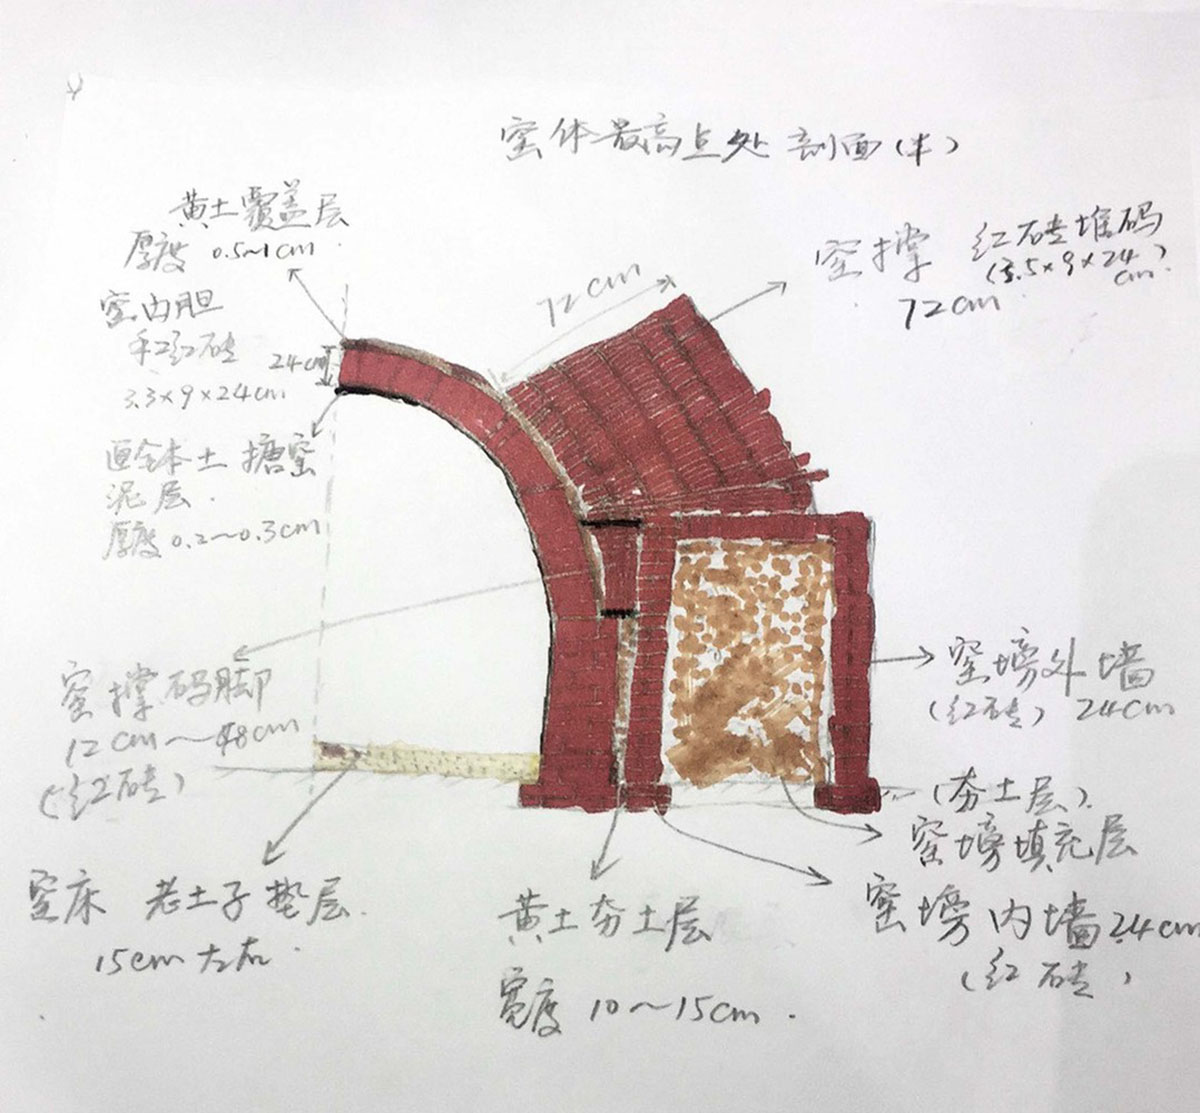 窑体最高点处 剖面(半)
黄土覆盖层
厚度 0.5~1cm
窑内胆
红砖
24cm
3.3×9×24cm
本土 搪窑
泥层.
厚度 0.2~0.3cm
72cm
窑撑 红砖堆码
(3.5×9×24cm)
72cm
窑撑码脚
12cm~48cm
(红砖)
窑塝外墙
(红砖) 24cm
(夯土层)
窑塝填充层
窑塝内墙 24cm
(红砖)
窑床 老土子垫层.
15cm左右.
黄土夯土层
宽度 10~15cm.